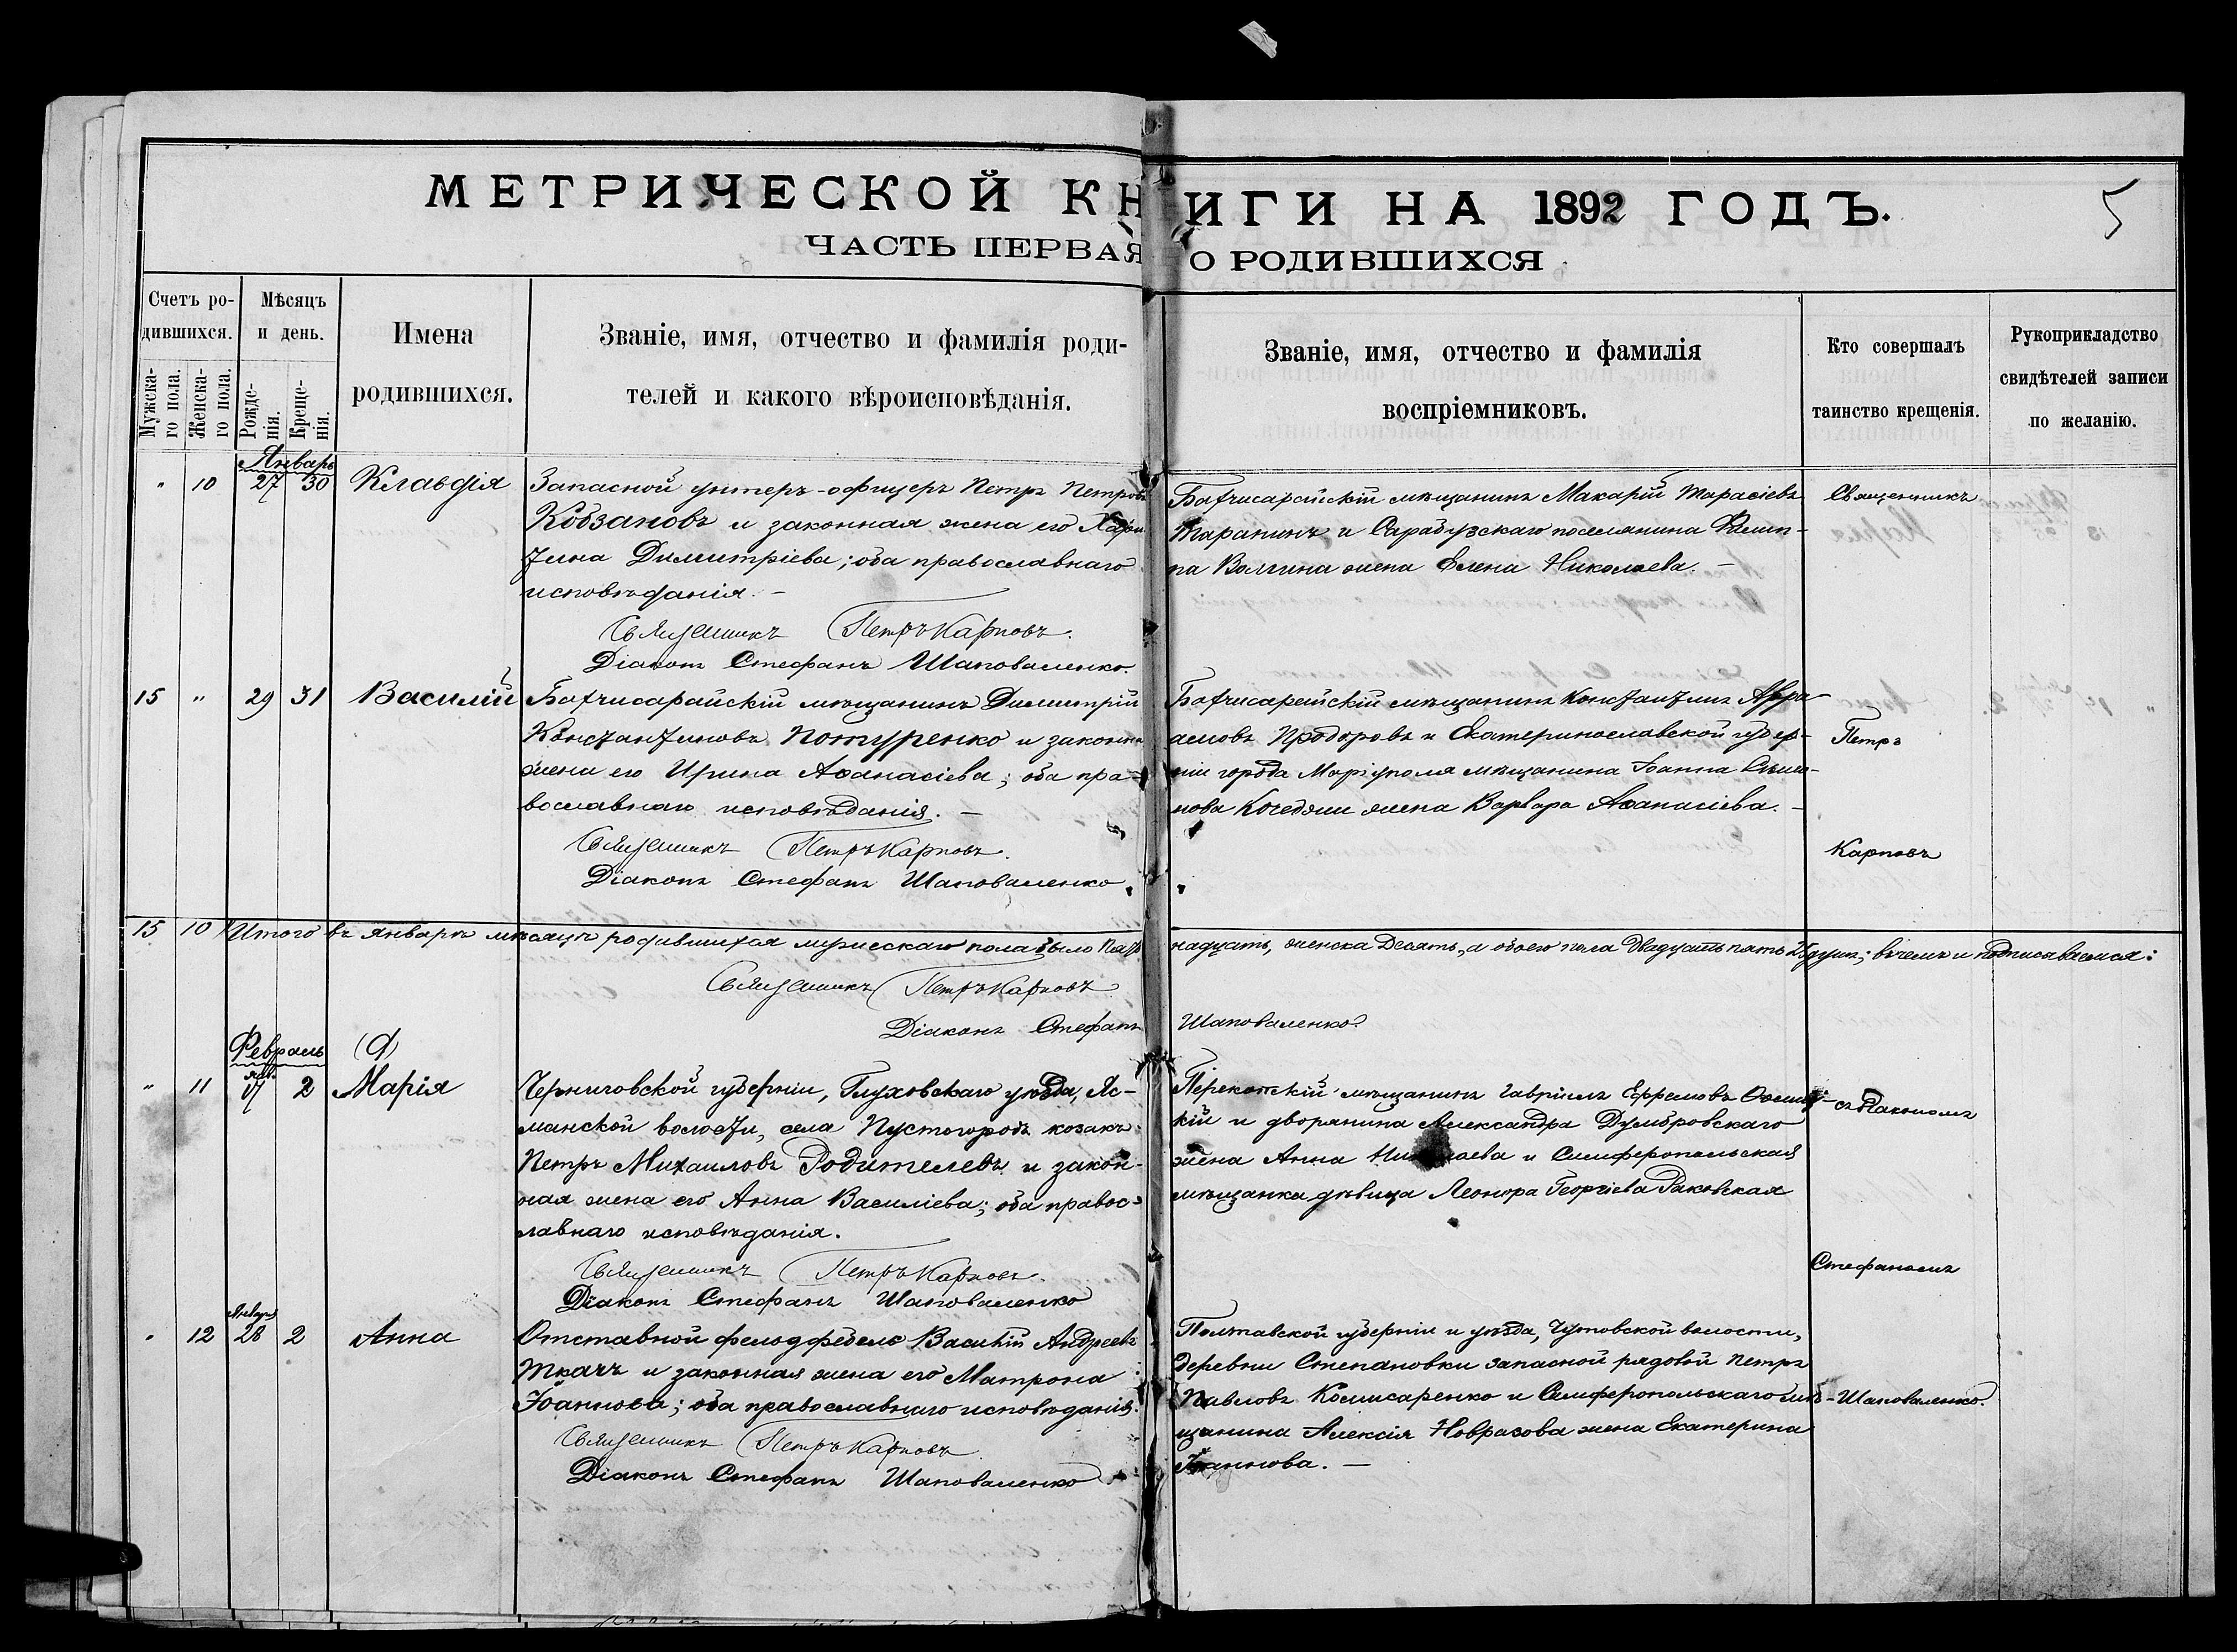 МЕТРИЧЕСКОЙ КНИГИ НА 1892 ГОДЪ.
5
ЧАСТЬ ПЕРВАЯ О РОДИВШИХСЯ
Счетъ ро-
дившихся.
Мужска-
го пола.
Женска-
го пола.
Мѣсяцъ
и день.
Рожде-
нія.
Креще-
нія.
Имена
родившихся.
Званіе, имя, отчество и фамилія роди-
телей и какого вѣроисповѣданія.
Званіе, имя, отчество и фамилія
воспріемниковъ.
Кто совершалъ
таинство крещенія.
Рукоприкладство
свидѣтелей записи
по желанію.
Январь
" 10 27 30 Клавдія
Запасной унтеръ-офицеръ Петръ Петровъ
Кобзановъ и законная жена его Хари-
тина Димитріева; оба православнаго
исповѣданія. -
Священникъ Петръ Карповъ.
Діаконъ Стефанъ Шаповаленко.
Бахчисарайскій мѣщанинъ Макарій Тарасіевъ
Таранинъ и Сарабузскаго поселянина Филип-
па Волгина жена Елена Николаева. -
Священникъ
15 " 29 31 Василій
Бахчисарайскій мѣщанинъ Димитрій
Константиновъ Потуренко и законная
жена его Ирина Аѳанасіева; оба пра-
вославнаго исповѣданія. -
Священникъ Петръ Карповъ.
Діаконъ Стефанъ Шаповаленко.
Бахчисарайскій мѣщанинъ Константинъ Авра-
амовъ и Екатеринославской губер-
ніи города Маріуполя мѣщанина Іоанна
жена Варвара Аѳанасіева. -
Петръ
Карповъ
15 10 Итого въ январѣ мѣсяцѣ родившихся мужескаго пола было Пят-
надцать, женска Десять, а обоего пола Двадцать пять 25 душъ; въ чемъ и подписываемся:
Священникъ Петръ Карповъ
Діаконъ Стефанъ Шаповаленко.
Февраль
" 11 янв. 2 Марія
Черниговской губерніи, Глуховскаго уѣзда, Яс-
манской волости, села Пустогородъ козакъ
Петръ Михаиловъ Родителевъ и закон-
ная жена его Анна Василіева; оба правос-
лавнаго исповѣданія.
Священникъ Петръ Карповъ.
Діаконъ Стефанъ Шаповаленко
Перекопскій мѣщанинъ Гавріилъ Ефремовъ
кій и дворянина Александра Думбровскаго
жена Анна и Симферопольская
мѣщанка дѣвица Леонора Георгіева Раковская
съ Діакономъ
Стефаномъ
" 12 Января 28 2 Анна
Отставной фельдфебель Василій Андреевъ
Ткачъ и законная жена его Матрона
Іоаннова; оба православнаго исповѣданія.
Священникъ Петръ Карповъ
Діаконъ Стефанъ Шаповаленко
Полтавской губерніи и уѣзда, Чутовской волости,
деревни Степановки запасной рядовой Петръ
Павловъ Комисаренко и Симферопольскаго мѣ-
щанина Алексія Новразова жена Екатерина
Іоаннова. -
Шаповаленко.